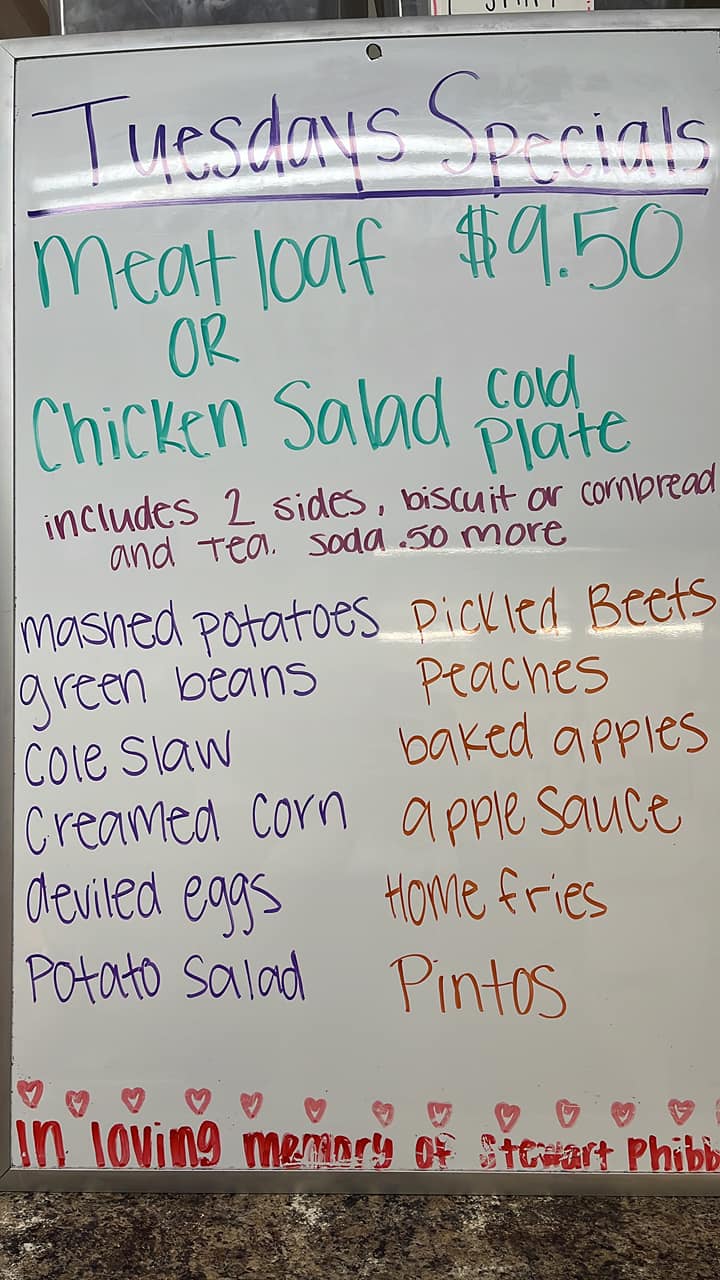 Tuesdays Specials
Meatloaf $9.50
OR
Chicken Salad cold plate
includes 2 sides, biscuit or cornbread
and Tea. soda .50 more
mashed potatoes
green beans
Cole Slaw
Creamed corn
deviled eggs
Potato Salad
Pickled Beets
Peaches
baked apples
apple Sauce
Home fries
Pintos
In loving memory of Stewart Phibb